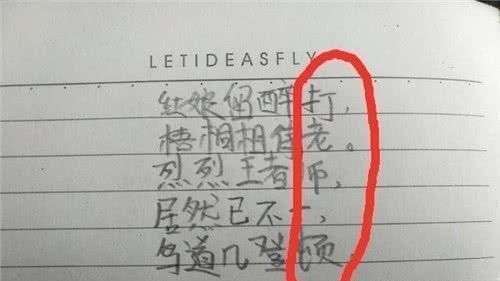 LETIDEASFLY
红娘留醉打，
梧桐相待老。
烈烈王者师，
居然已不一，
鸟道几登顿